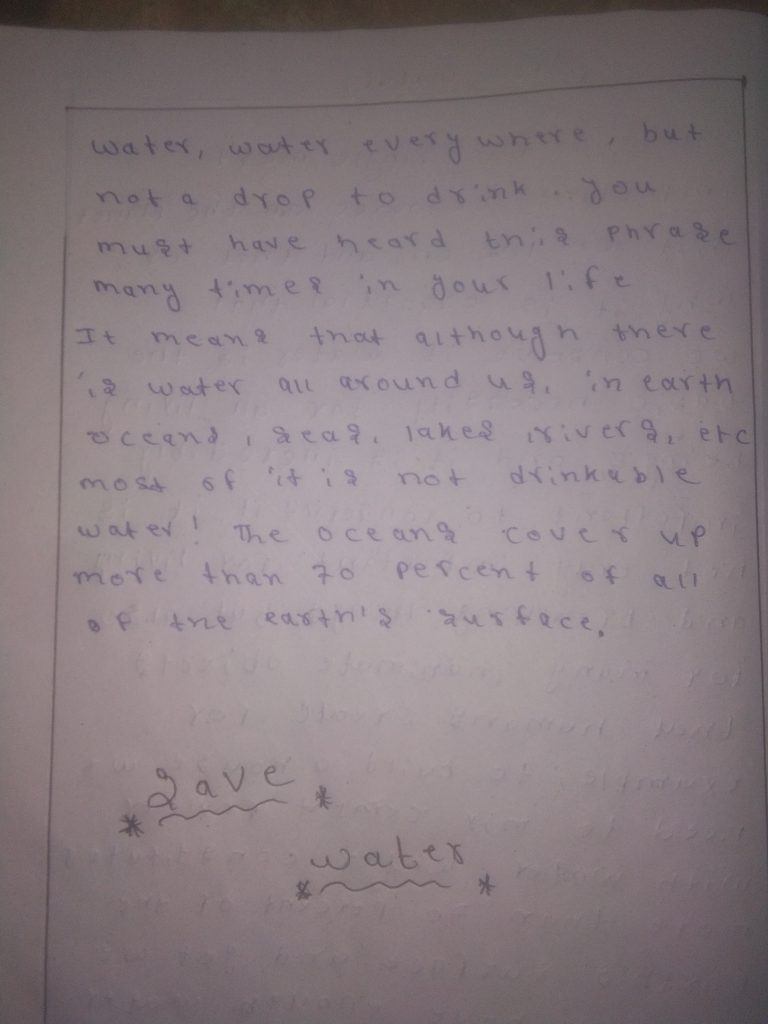 water, water every where, but
not a drop to drink. you
must have heard this phrase
many times in your life
It means that although there
is water all around us, in earth
oceans, seas, lakes, rivers, etc
most of it is not drinkable
water! The oceans cover up
more than 70 percent of all
of the earth's surface.
Save
water